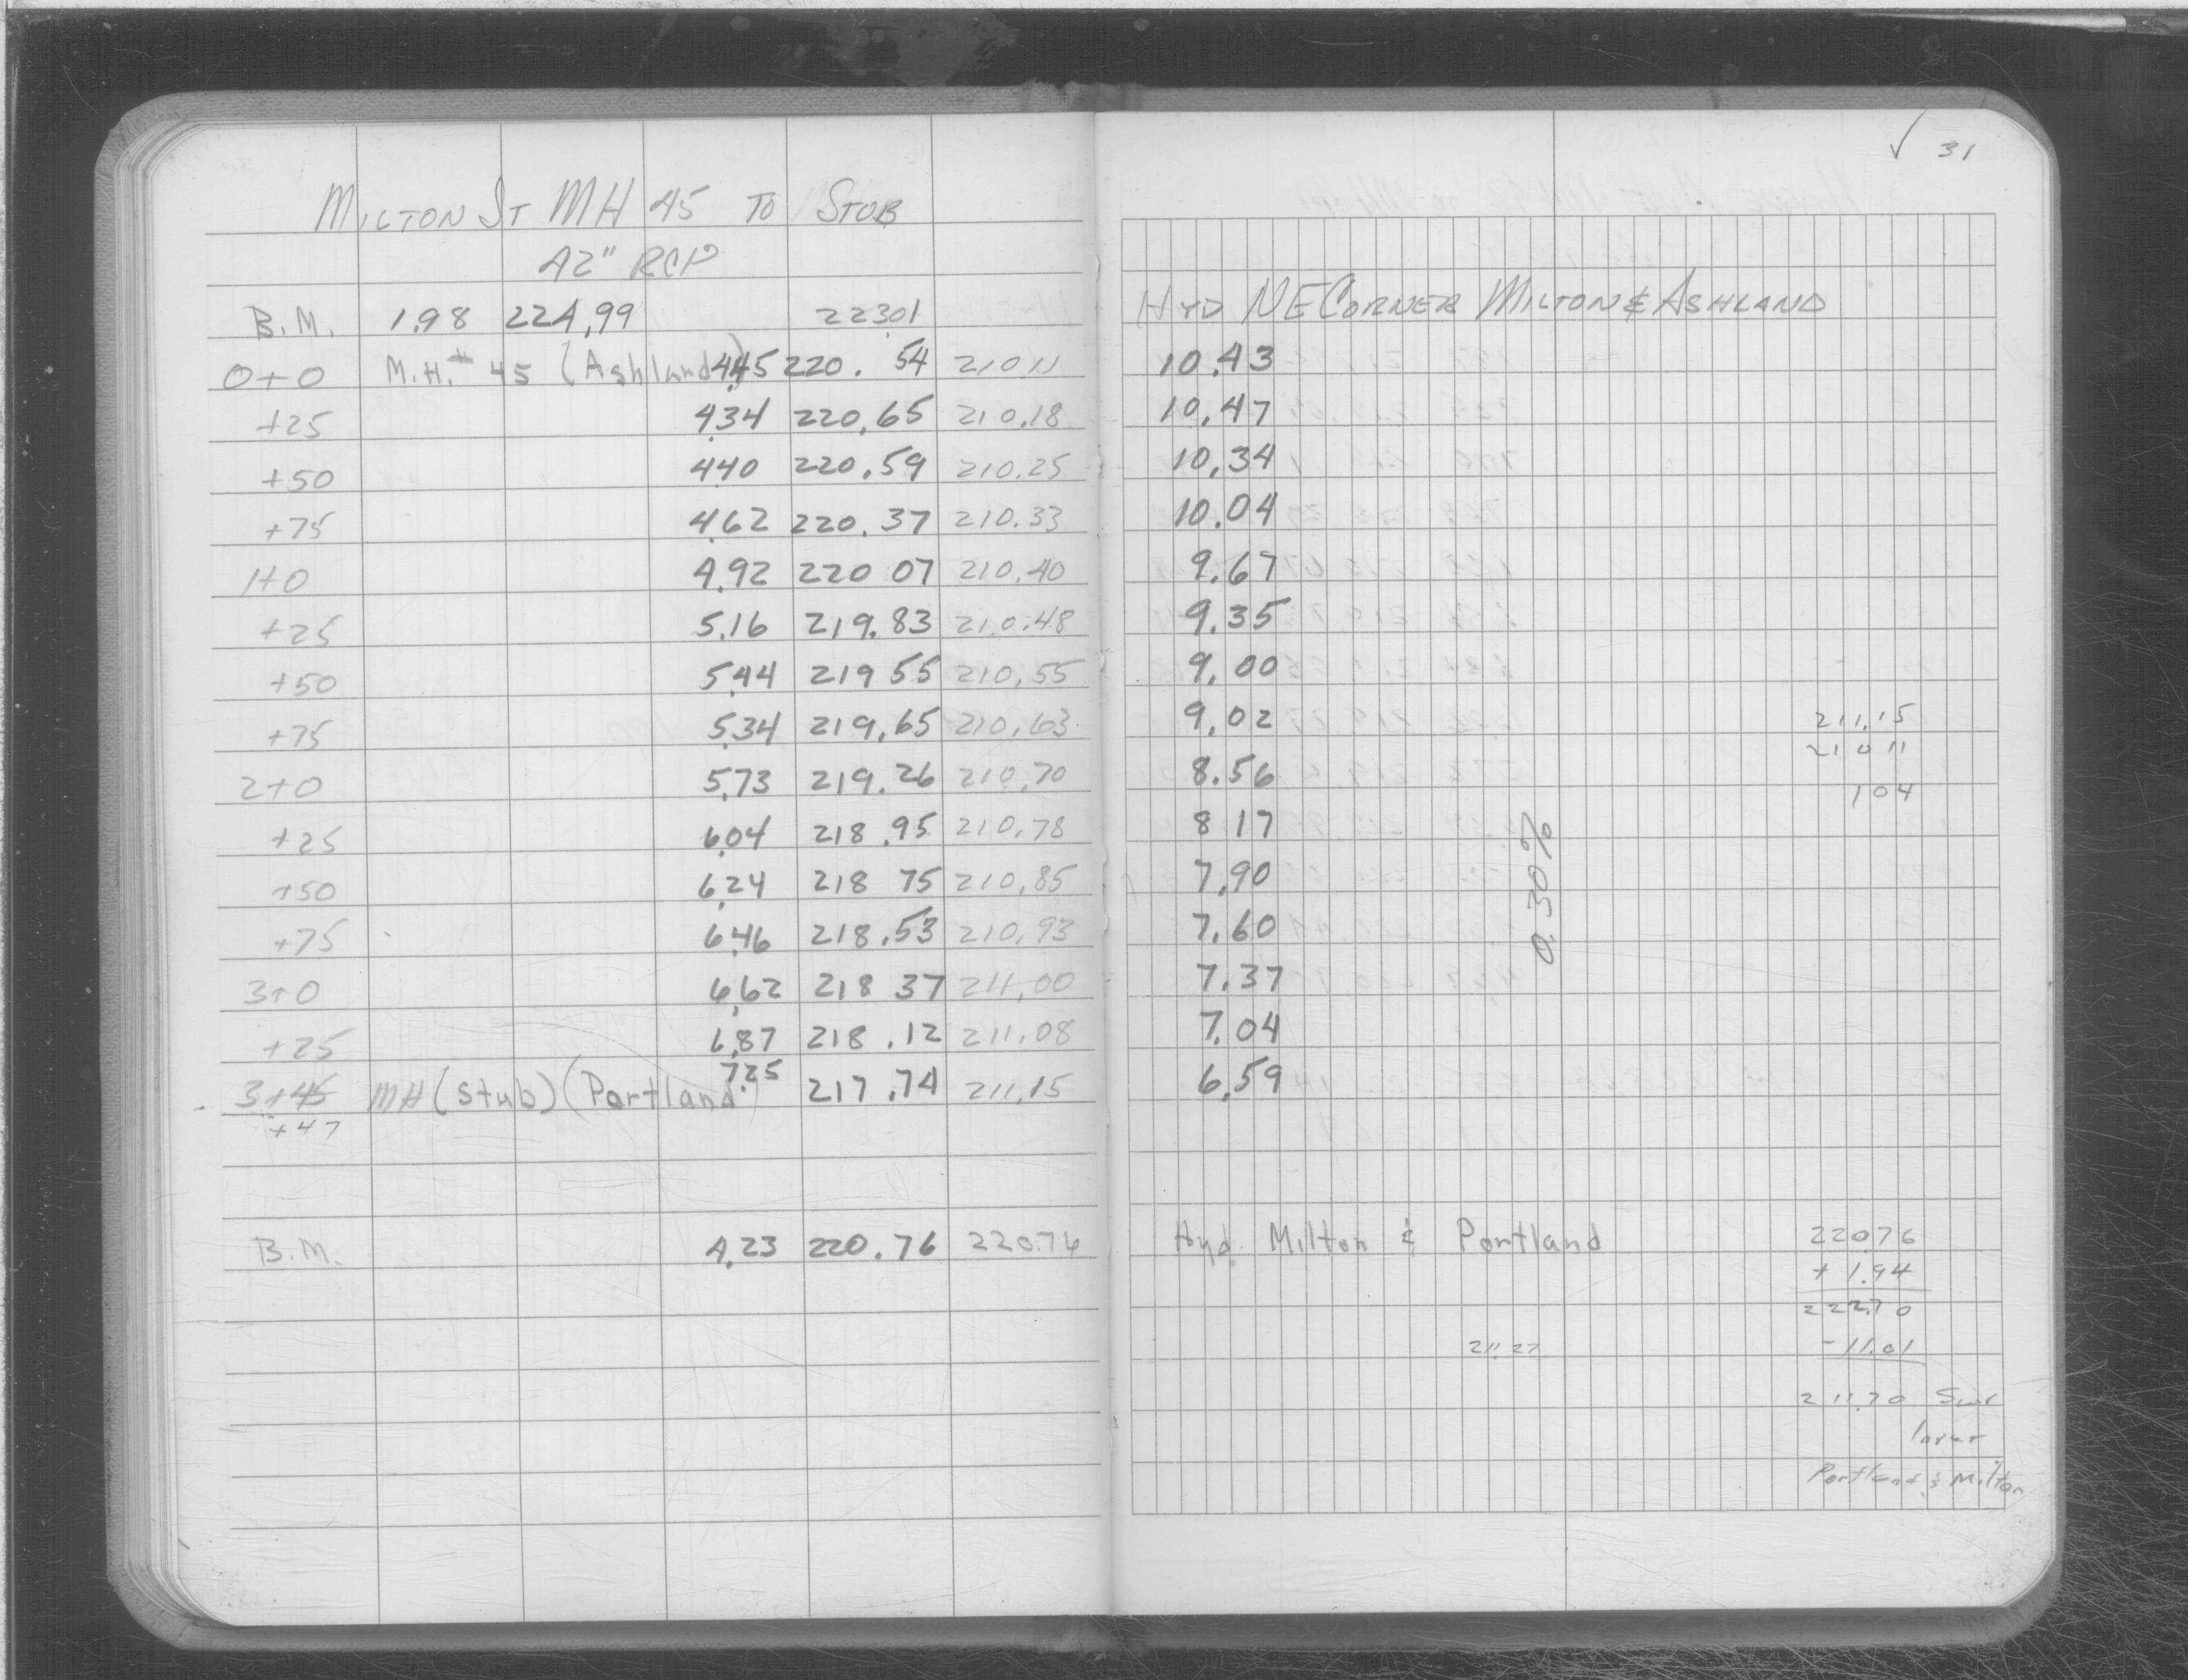 MILTON ST MH 45 TO STUB
42" RCP
B.M. 1.98 224.99 223.01
0+0 M.H.# 45 (Ashland) 4.45 220.54 210.11
+25 4.34 220.65 210.18
+50 4.40 220.59 210.25
+75 4.62 220.37 210.33
1+0 4.92 220 07 210.40
+25 5.16 219.83 210.48
+50 5.44 219 55 210.55
+75 5.34 219.65 210.63
2+0 5.73 219.26 210.70
+25 6.04 218.95 210.78
+50 6.24 218 75 210.85
+75 6.46 218.53 210.93
3+0 6.62 218 37 211.00
+25 6.87 218.12 211.08
3+45 MH (Stub) (Portland) 7.25 217.74 211.15
+47
B.M. 4.23 220.76 220.76
✓ 31
HYD NE CORNER MILTON & ASHLAND
10.43
10.47
10.34
10.04
9.67
9.35
9.00
9.02 211.15
210 11
8.56 1 04
8 17
7.90
0.30%
7.60
7.37
7.04
6.59
Hyd. Milton & Portland 220.76
+ 1.94
222.70
211.27 - 11.01
211.70 Swr
Inver
Portland & Milton